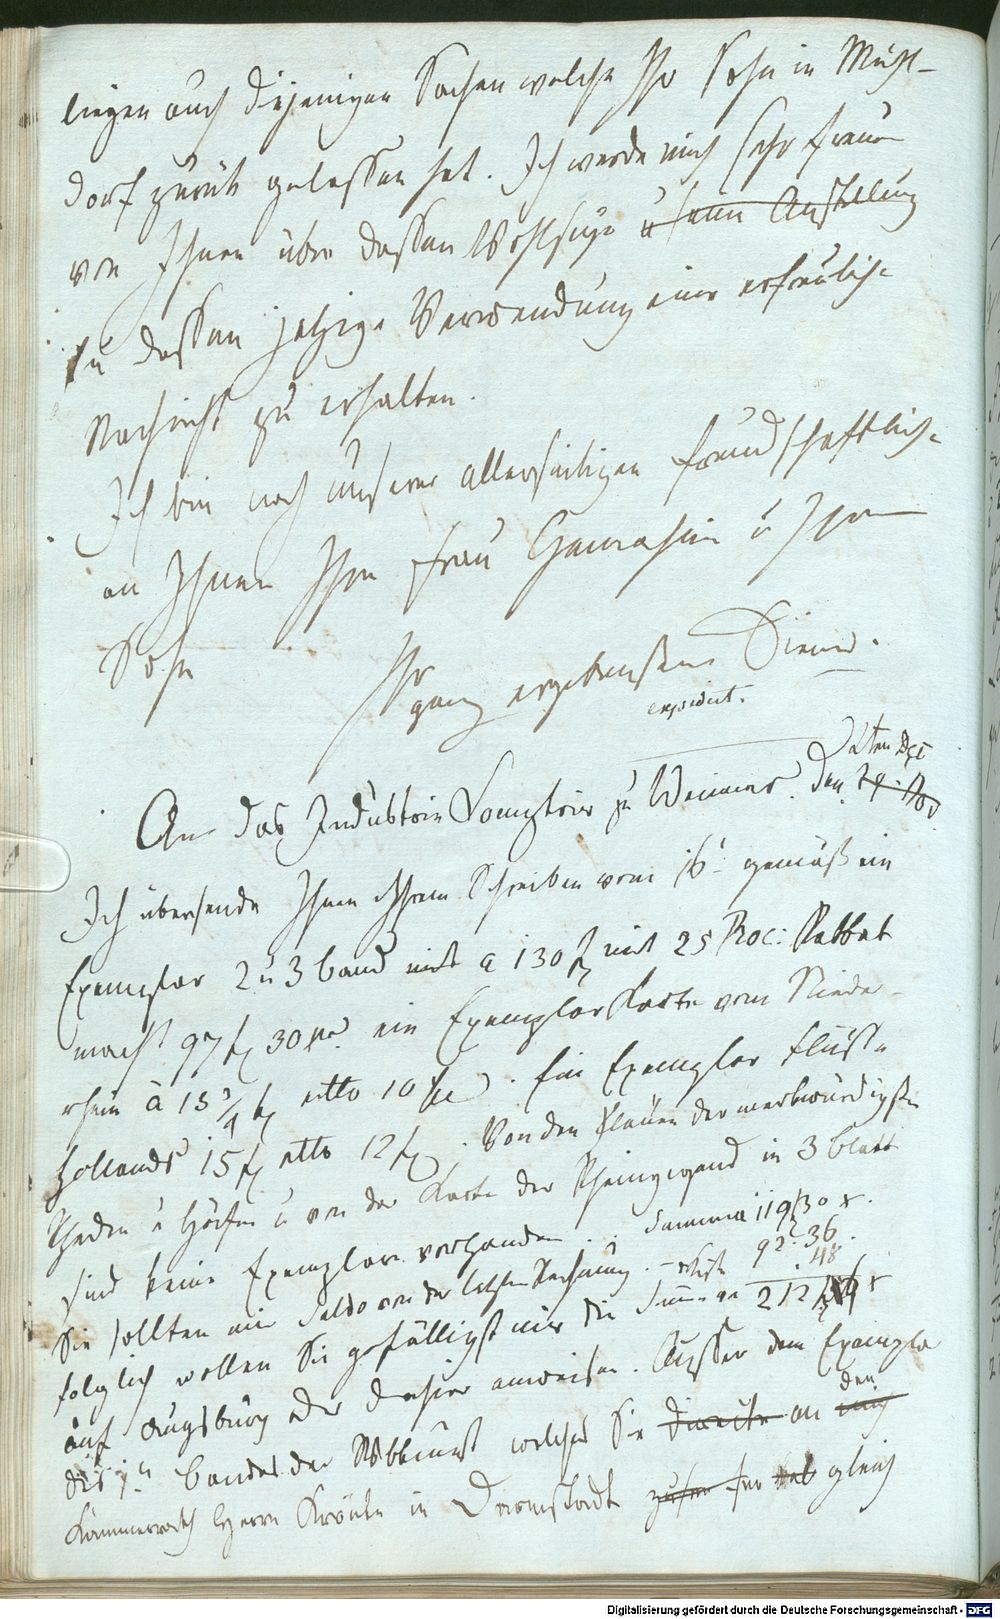 liegen auch diejenigen Sachen welche Ihr Sohn in Mühl-
dorf zurük gelassen hat. Ich werde mich sehr freuen
von Ihnen über dessen Wohlseyn u seine Anstellung
u dessen jetzige Verwendung eine erfreuliche
Nachricht zu erhalten.
Ich bin nach unserer allerseitigen freundschaftliche
an Ihnen Ihre Frau Gemahlin u Ihren
Sohn
Ihr
ganz ergebenster Diener.
expedirt.
2ten
An das Industrie Comptoir zu Weimar. den 24. Nov
Ich übersende Ihnen Ihrem Schreiben vom 16t gemäß ein
Exemplar 2 u 3 Band mit a 130 f mit 25 Proc: Rabbat
macht 97 f 30 xr ein Exemplar Karte vom Niede-
rhein à 13 3/4 f netto 10 f. Ein Exemplar Flüsse
Hollands 15 f netto 12 f. Von den Plänen der merkwürdigsten
Rheden u Häfen u von der Karte der Rheingegend in 3 Blatt
sind keine Exemplare vorhanden. Summa 119 f 30 x.
Sie sollten mir Saldo von der letzten Rechnung. 92. 36.
48
folglich wollen Sie gefälligst mir die Summe 212
auf Augsburg oder hieher anweisen. Ausser dem Exemplar
den
des Bandes der welches Sie directe an mich
Kammerrath Herrn Kröncke in Darmstadt gleich
Digitalisierung gefördert durch die Deutsche Forschungsgemeinschaft - DFG